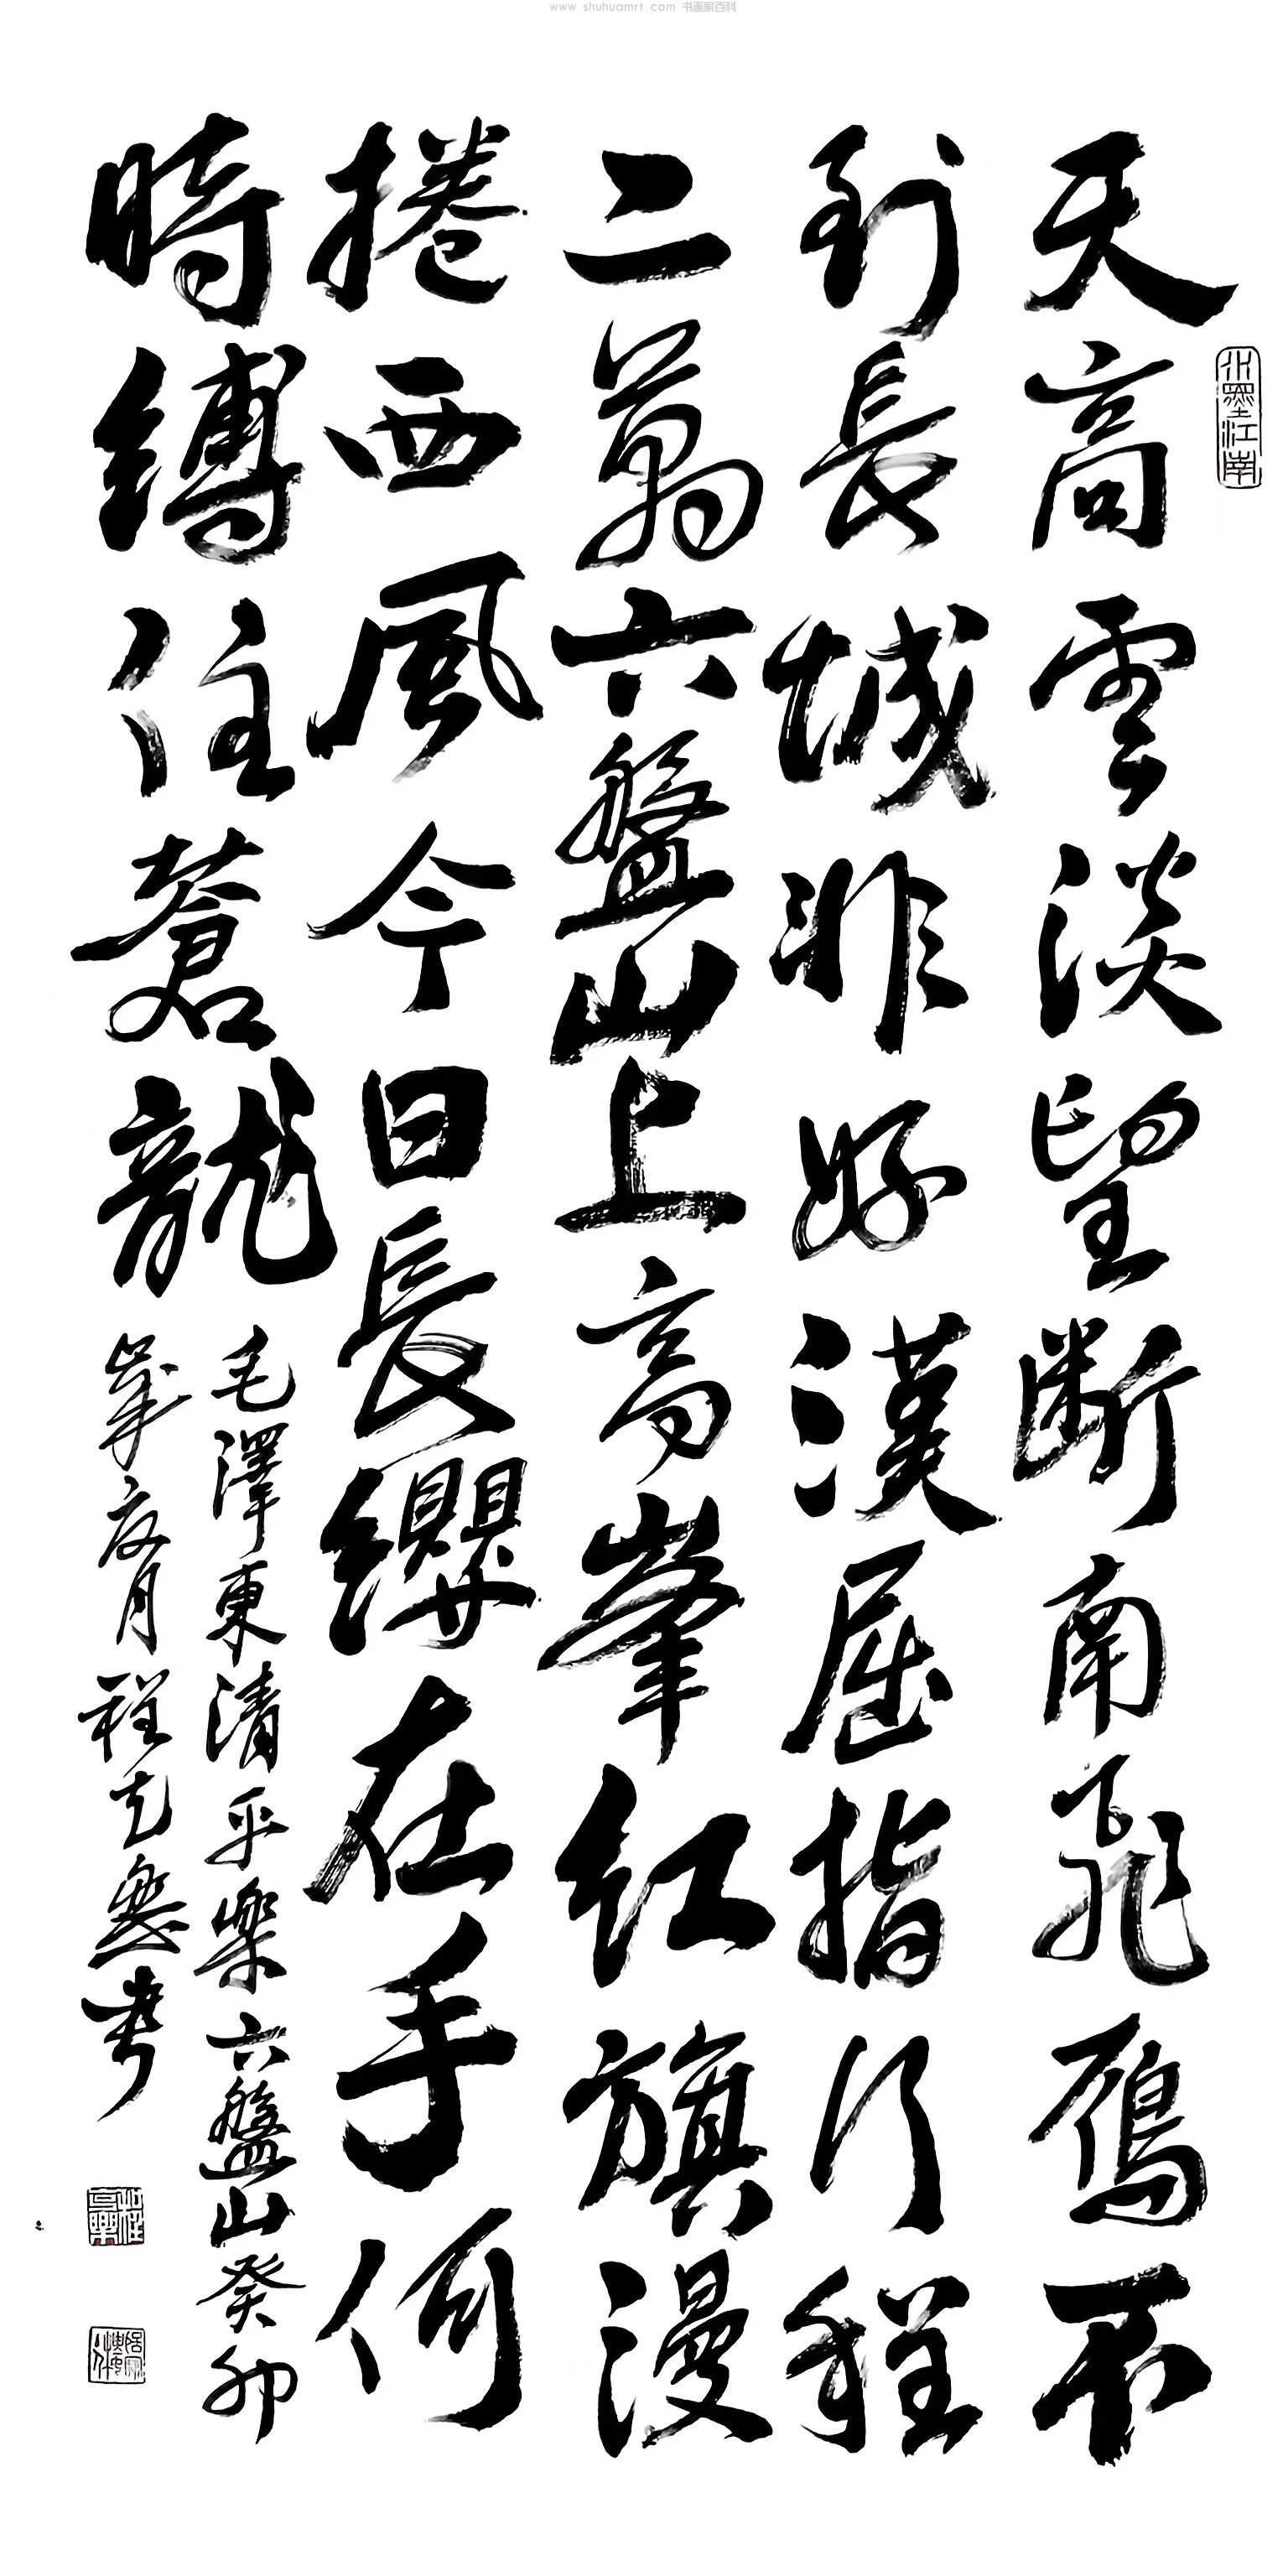 www.shuhuamrt.com 书画家百科
水墨江南
天高雲淡望斷南飛鴈不
到長城非好漢屈指行程
二萬六盤山上高峯紅旗漫
捲西風今日長纓在手何
時縛住蒼龍
毛澤東清平樂六盤山癸卯
歲月程書